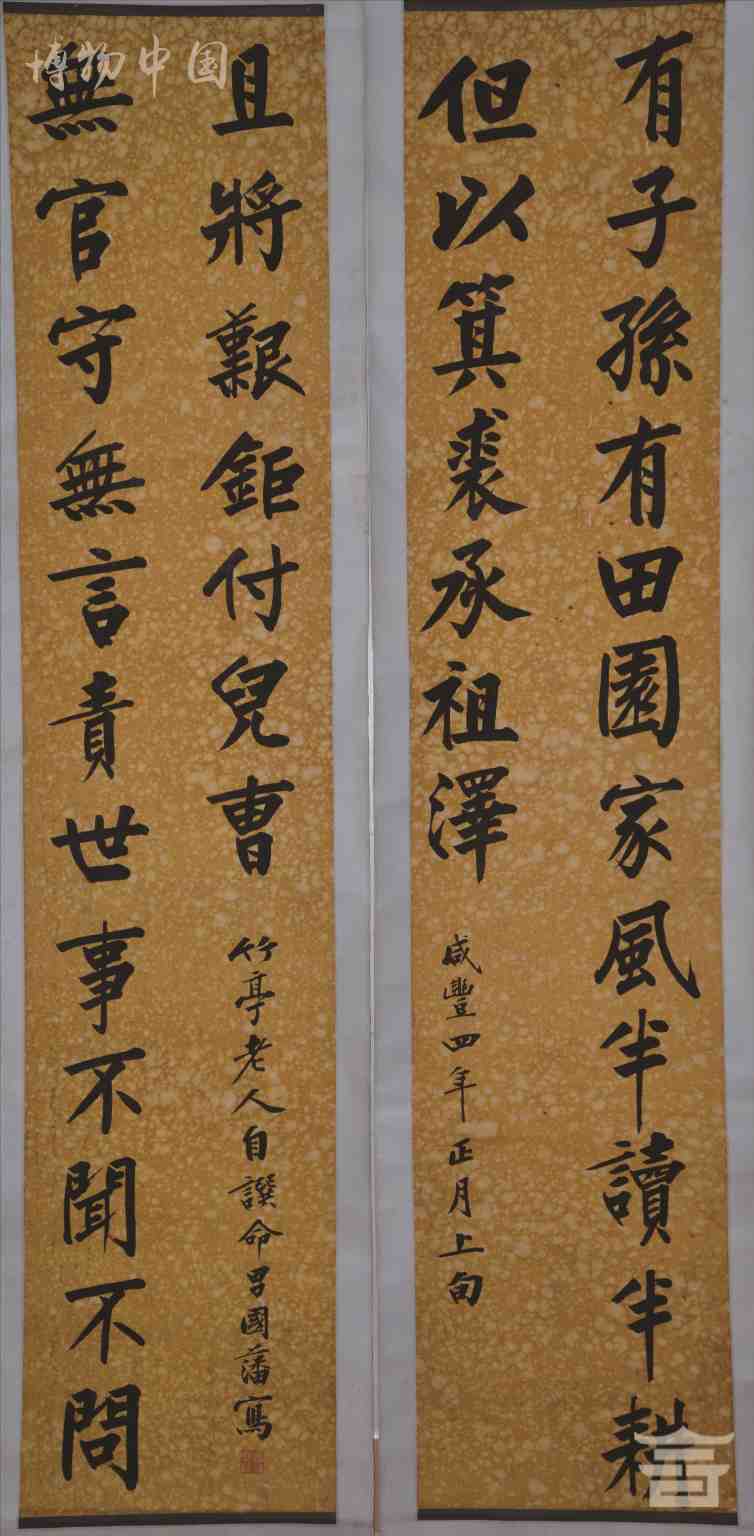 有子孫有田園家風半讀半耕
但以箕裘承祖澤
咸豐四年正月上旬
無官守無言責世事不聞不問
且將艱鉅付兒曹
竹亭老人自譔命男國藩寫
博物中国